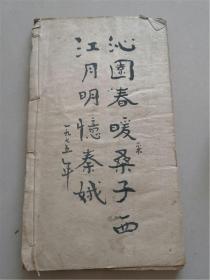 沁園春暖桑子西
采
江月明憶秦娥
一九七五年